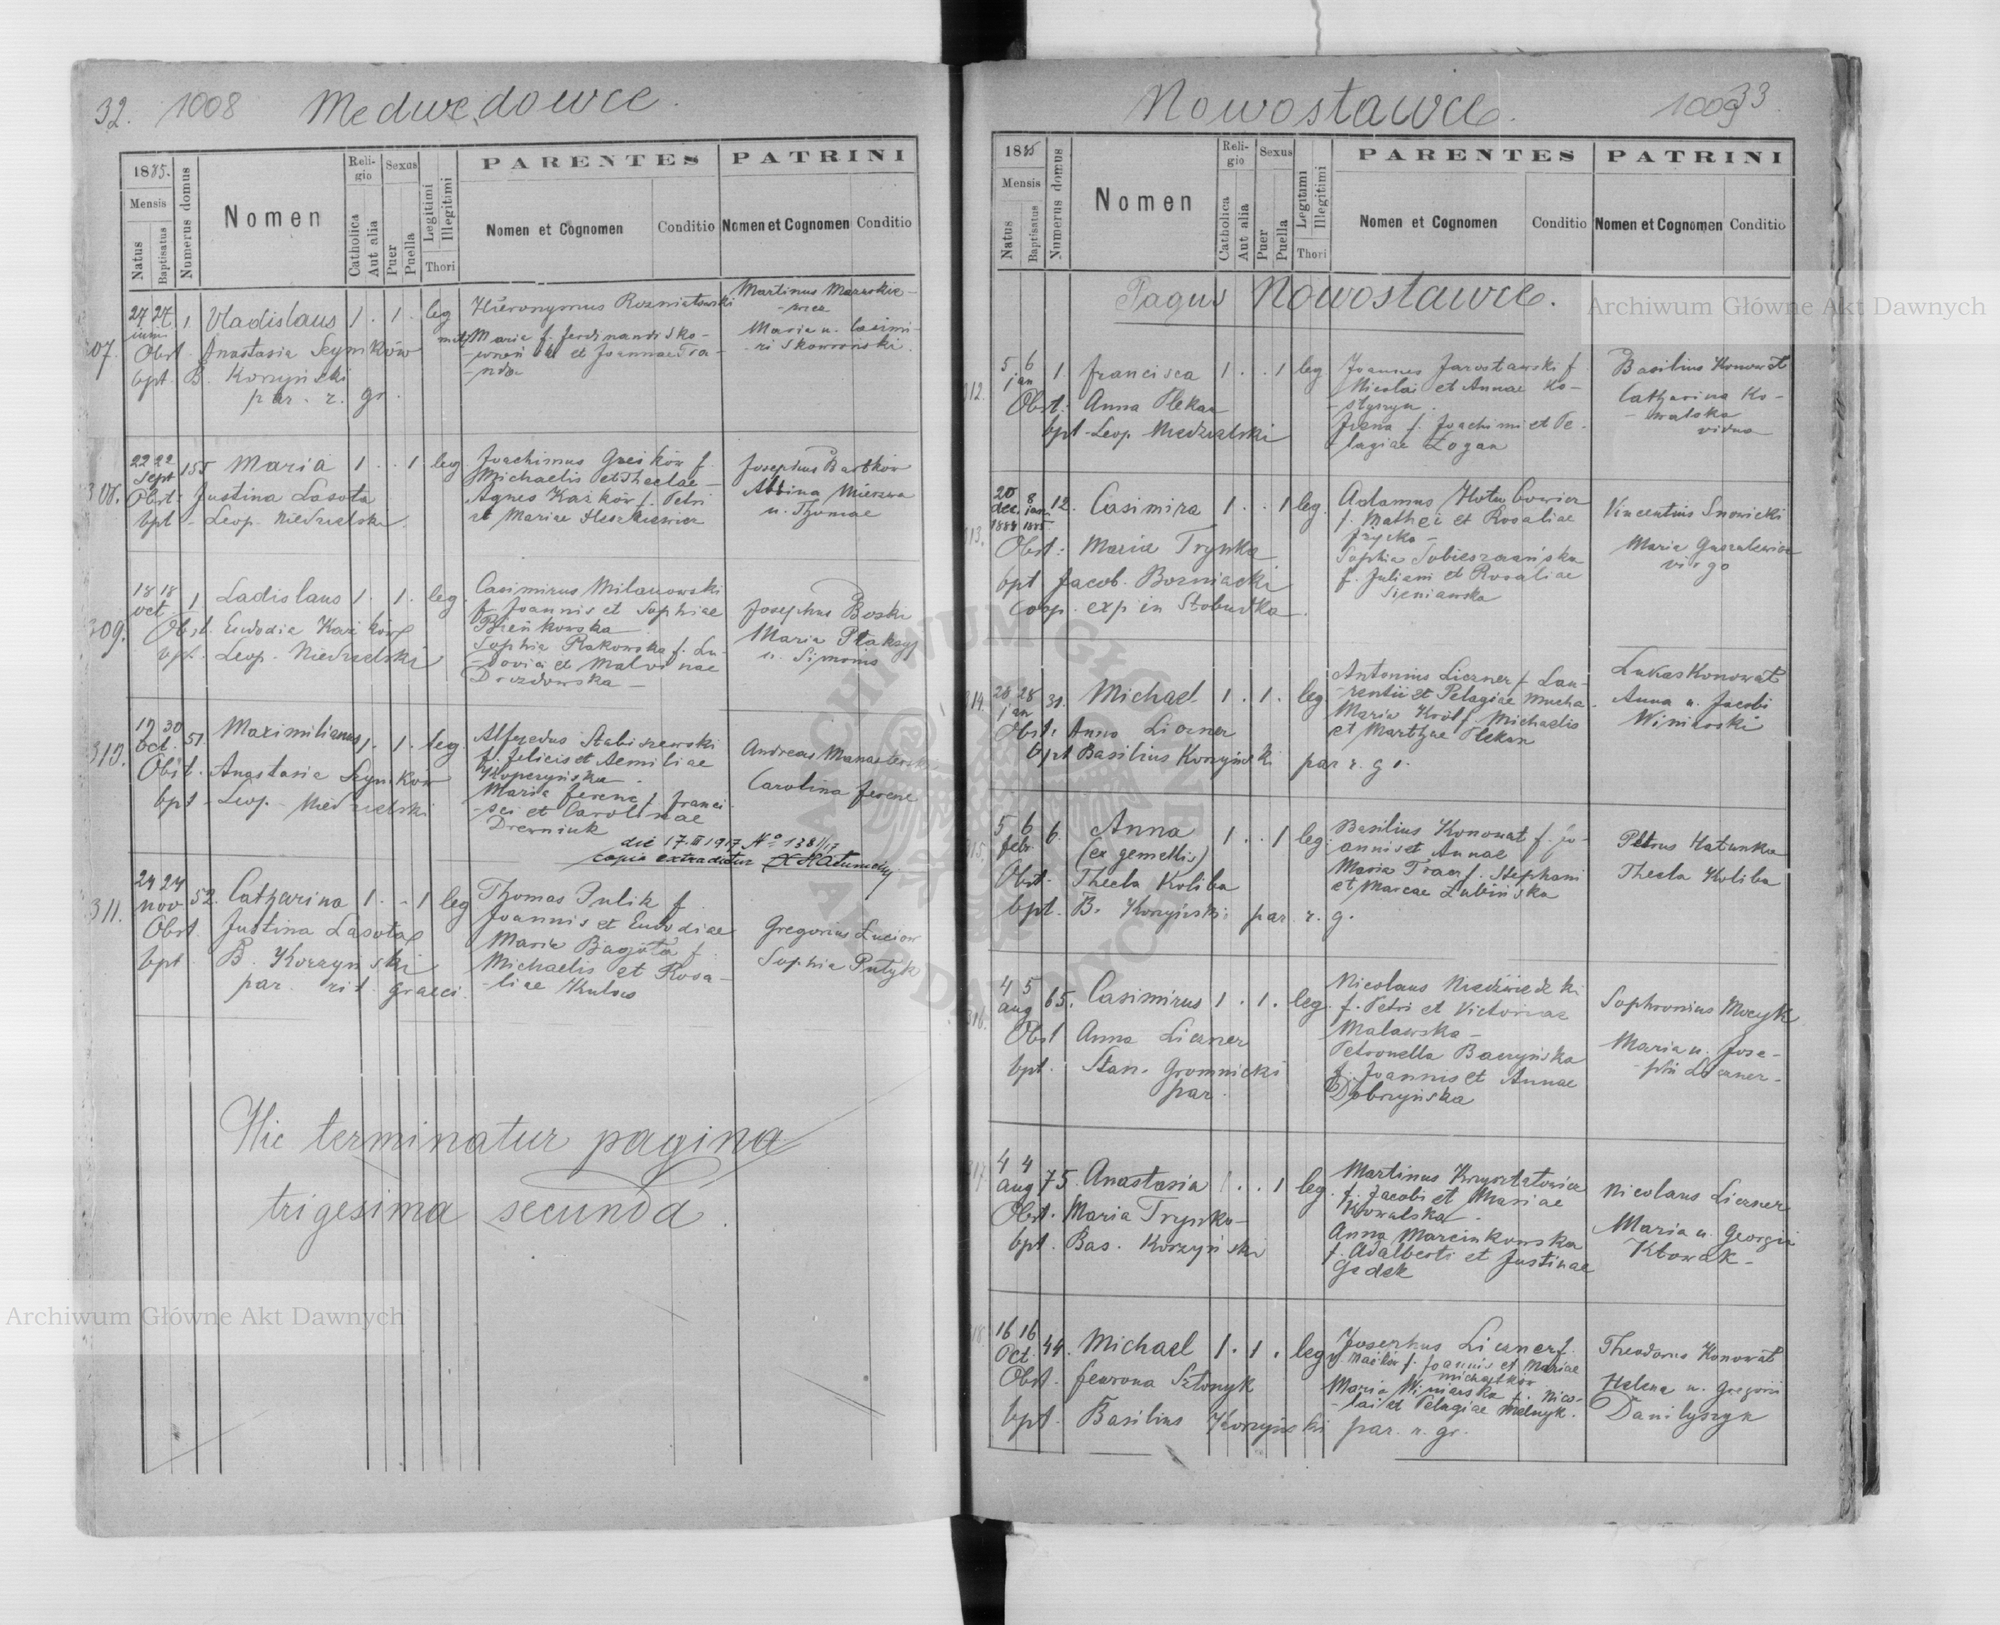 32. 1008 Medwedowce.
1885.
Mensis
Natus
Baptisatus
Numerus domus
Nomen
Religio
Catholica
Aut alia
Sexus
Puer
Puella
Legitimi
Illegitimi
Thori
PARENTES
Nomen et Cognomen
Conditio
PATRINI
Nomen et Cognomen
Conditio
307.
27 27 1. Vladislaus 1 . 1 . leg
Obst. Anastasia Szymków
bpt. B. Korzyński
par. r. gr.
Hieronymus Rozniatowski
Maria f. Ferdinandi Sko-
et Joannae
Martinus
Maria u. Casimi-
ri Skowroński
308.
22 22 Sept 155 Maria 1 . . 1 leg
Obst. Justina Lasota
bpt - Leop. Niedzielski
Joachimus f.
Michaelis et Theclae -
Agnes Kaźków f. Petri
et Mariae
Josephus Bartków
Albina
u. Thomae
309.
18 18 oct. 1 Ladislaus 1 . 1 . leg.
Obst. Eudodia
bpt. Leop. Niedzielski
Casimirus Milanowski
f. Joannis et Sophiae
Bieńkowska
Sophia f. Lu-
dovici et Malvinae
Drozdowska -
Josephus Boski
Maria
u. Simonis
310.
19 30 Oct. 51 Maximilianus 1 . 1 . leg
Obst. Anastasia Szymków
bpt - Leop - Niedzielski
Alfredus Stabiszewski
f. Felicis et Aemiliae
Koperzyńska -
Maria Ferenc f. Franci-
sci et Carolinae
Drewniuk
Andreas
Carolina Ferenc
die 17. III 1917 No 138/17
copia extradatur
311.
24 24 nov 52. Catharina 1 . . 1 leg
Obst. Justina Lasota
bpt B. Korzyński
par. rit. graeci.
Thomas Pulik f.
Joannis et Eudodiae
Maria Bagota f.
Michaelis et Rosa-
liae
Gregorius
Sophia Putyk
Hic terminatur pagina
trigesima secunda.
Nowostawce. 1009 33.
1885
Mensis
Natus
Baptisatus
Numerus domus
Nomen
Religio
Catholica
Aut alia
Sexus
Puer
Puella
Legitimi
Illegitimi
Thori
PARENTES
Nomen et Cognomen
Conditio
PATRINI
Nomen et Cognomen
Conditio
Pagus Nowostawce.
312.
5 6 jan 1. Francisca 1 . . 1 leg
Obst: Anna Plekan
bpt - Leop. Niedzielski
Joannes Jarosławski f
Nicolai et Annae Ko-
styszyn.
f. Joachimi et Pe-
lagiae Zogan
Basilius Konowat
Catharina Ko-
walska
vidua
313.
20 dec. 1884 8 jan 1885 12. Casimira 1 . . 1 leg.
Obst: Maria Trynka
bpt Jacob. Bozniacki
Coop. exp in
Adamus
f. Mathei et Rosaliae
Sophia Sobieszczańska
f. Juliani et Rosaliae
Sieniawska
Vincentius Snowicki
Maria
virgo
314.
28 28 jan 31. Michael 1 . 1 . leg
Obst. Anna Liczner
bpt Basilius Korzyński par r. gr.
Antonius Liczner f. Lau-
rentii et Pelagiae Mucha.
Maria Król f. Michaelis
et Marthae Plekan
Lukas Konowat
Anna u. Jacobi
Winiarski
315.
5 6 febr 6. Anna 1 . . 1 leg
(ex gemellis)
Obst. Thecla Koliba
bpt. B. Korzyński par r. g.
Basilius Konowat f. Jo-
annis et Annae
Maria f. Stephani
et Mariae Lubińska
Petrus Hatunka
Thecla Koliba
316.
4 5 aug 65. Casimirus 1 . 1 . leg.
Obst Anna Liczner
bpt. Stan. Gromnicki
par.
Nicolaus Niedźwiedzki
f. Petri et Victoriae
Malawska -
Petronella Baczyńska
f. Joannis et Annae
Dobrzyńska
Sophronius Mocyk
Maria u. Jose-
phi Liczner -
317.
4 4 aug 75. Anastasia 1 . . 1 leg.
Obst. Maria Trynka -
bpt. Bas. Korzyński
Martinus Krzysztatowicz
f. Jacobi et Mariae
Kowalska.
Anna Marcinkowska
f. Adalberti et Justinae
Gadek
Nicolaus Liczner
Maria u. Georgii
Kłowak -
318.
16 16 Oct. 44. Michael 1 . 1 . leg
Obst. Fewrona Sztonyk
bpt. Basilius Korzyński par. r. gr.
Josephus Liczner f.
f. Joannis et Mariae
Michałków
Maria Winiarska f. Nico-
lai et Pelagiae Melnyk.
Theodorus Konowat
Helena u. Gregorii
Daniłyszyn
Archiwum Główne Akt Dawnych
Archiwum Główne Akt Dawnych
ARCHIWUM GŁÓWNE
AKT DAWNYCH